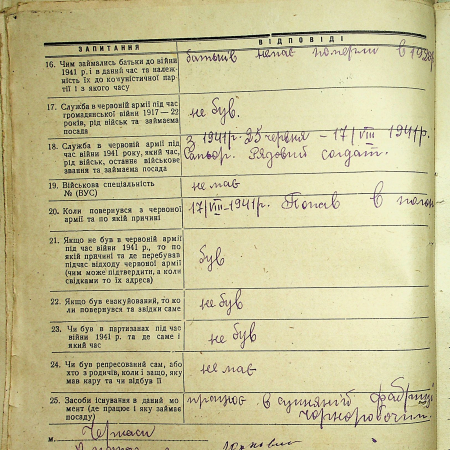 ЗАПИТАННЯ ВІДПОВІДІ
16. Чим займались батьки до війни
1941 р. і в даний час та належ-
ність їх до комуністичної пар-
тії і з якого часу
батьків немає померли в 1920р
17. Служба в червоній армії під час
громадянської війни 1917—22
років, рід військ та займаема
посада
не був.
18. Служба в червоній армії під
час війни 1941 року, який час,
рід військ, останне військове
звання та займаема посада
з 1941р. 25 червня - 17/VIII 1941р.
Сапьор. Рядовий солдат.
19. Військова спеціяльність
№ (ВУС)
не має
20. Коли повернувся в червоної
армії та по якій причині
17/VIII-1941р. Попав в полон-
21. Якщо не був в червоній армії
під час війни 1941 р., то по
якій причині та де перебував
підчас відходу червоної армії
(чим може підтвердити, а коли
свідками то їх адреса)
був
22. Якщо був евакуйований, то ко
ли повернувся та звідки саме
не був
23. Чи був в партизанах під час
війни 1941 р. та де саме і
який час
не був
24. Чи був репресований сам, або
хто в родичів, коли і защо, яку
мав кару та чи відбув її
не має
25. Засоби існування в даний мо
мент (де працює і яку займає
посаду)
працює в сушняній фабриці
чорноробочим.
м. Черкаси